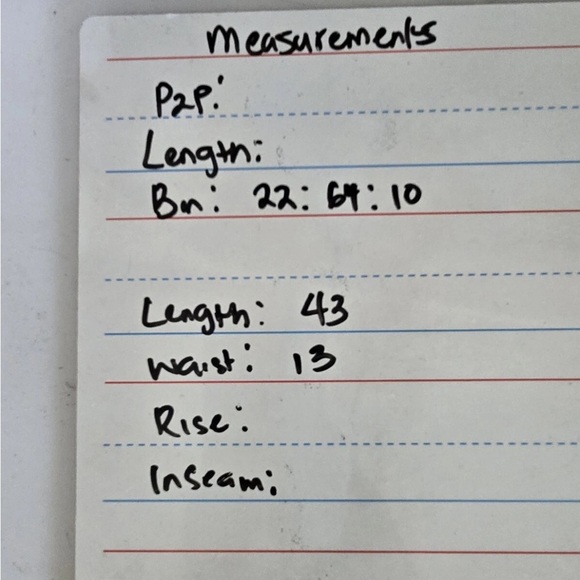 Measurements
P2P:
Length:
Bn: 22: 64: 10
Length: 43
Waist: 13
Rise:
Inseam: